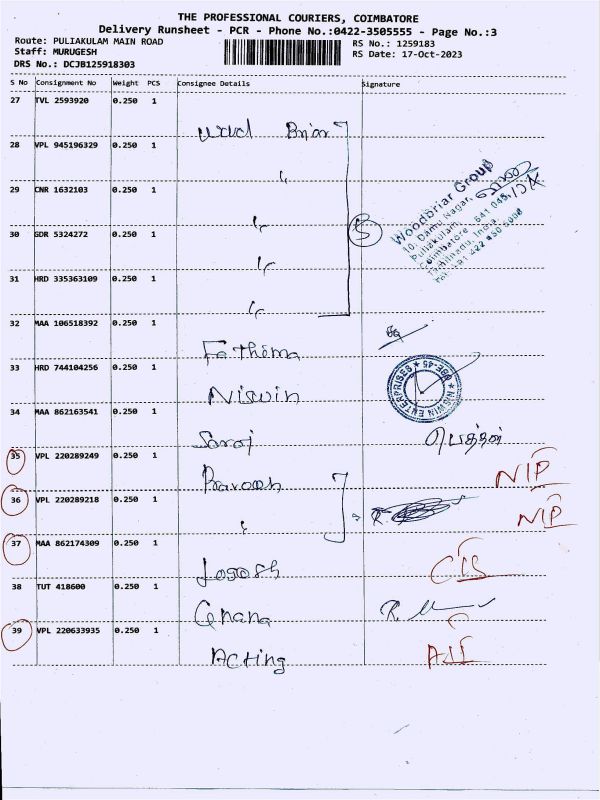 THE PROFESSIONAL COURIERS, COIMBATORE
Delivery Runsheet - PCR - Phone No.:0422-3505555 - Page No.:3
Route: PULIAKULAM MAIN ROAD RS No.: 1259183
Staff: MURUGESH RS Date: 17-Oct-2023
DRS No.: DCJB125918303
S No Consignment No Weight PCS Consignee Details Signature
27 TVL 2593920 0.250 1
28 VPL 945196329 0.250 1
29 CNR 1632103 0.250 1
Woodbriar Group
10, Damu Nagar,
Puliakulam,
Coimbatore - 641 045,
Tamilnadu, India.
Tel: +91 422 450 5000
30 GDR 5324272 0.250 1
5
31 HRD 335363109 0.250 1
32 MAA 106518392 0.250 1
Fathima
33 HRD 744104256 0.250 1
Niswin
NISWIN ENTERPRISES * CBE-45 *
34 MAA 862163541 0.250 1
Saroj
35 VPL 220289249 0.250 1
NIP
36 VPL 220289218 0.250 1
NIP
37 MAA 862174309 0.250 1
38 TUT 418600 0.250 1
Gnana
39 VPL 220633935 0.250 1
Acting